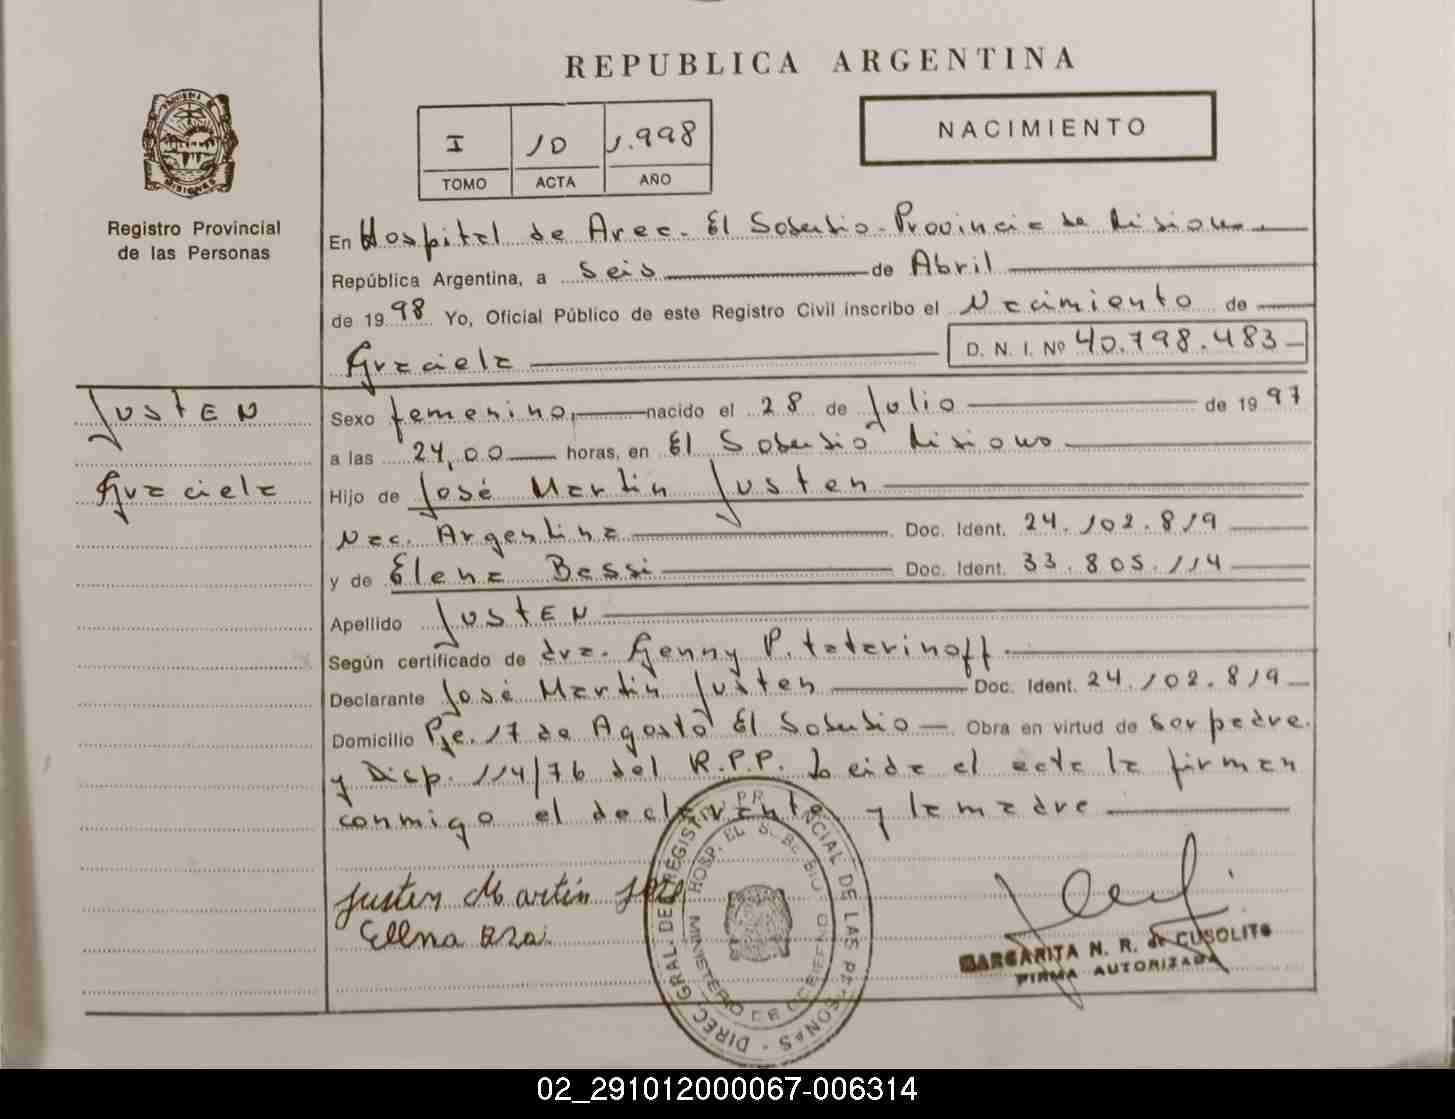 REPUBLICA ARGENTINA
NACIMIENTO
I 10 1.998
TOMO ACTA AÑO
MISIONES
Registro Provincial
de las Personas
En Hospital de Area. El Soberbio. Provincia de Misiones.
República Argentina, a seis de Abril
de 1998 Yo, Oficial Público de este Registro Civil inscribo el Nacimiento de
Graciela D. N. I. Nº 40.798.483
JustEN
Graciela
Sexo femenino, nacido el 28 de Julio de 1997
a las 24,00 horas, en El Soberbio Misiones
Hijo de José Martin Justen
Nac. Argentina Doc. Ident. 24.102.819
y de Elena Bassi Doc. Ident. 33.805.114
Apellido JustEN
Según certificado de dra. Genny P. tatarinoff
Declarante José Martin Justen Doc. Ident. 24.102.819
Domicilio Pje. 17 de Agosto El Soberbio Obra en virtud de ser padre.
y Disp. 114/76 del R.P.P. Leida el acta la firman
conmigo el declarante y la madre
Justen Martín Jose
Elena
DIREC. GRAL. DEL REGISTRO PROVINCIAL DE LAS PERSONAS
HOSP. EL SOBERBIO
MINISTERIO DE GOBIERNO
MARGARITA N. R. de CUSOLITO
FIRMA AUTORIZADA
02_291012000067-006314